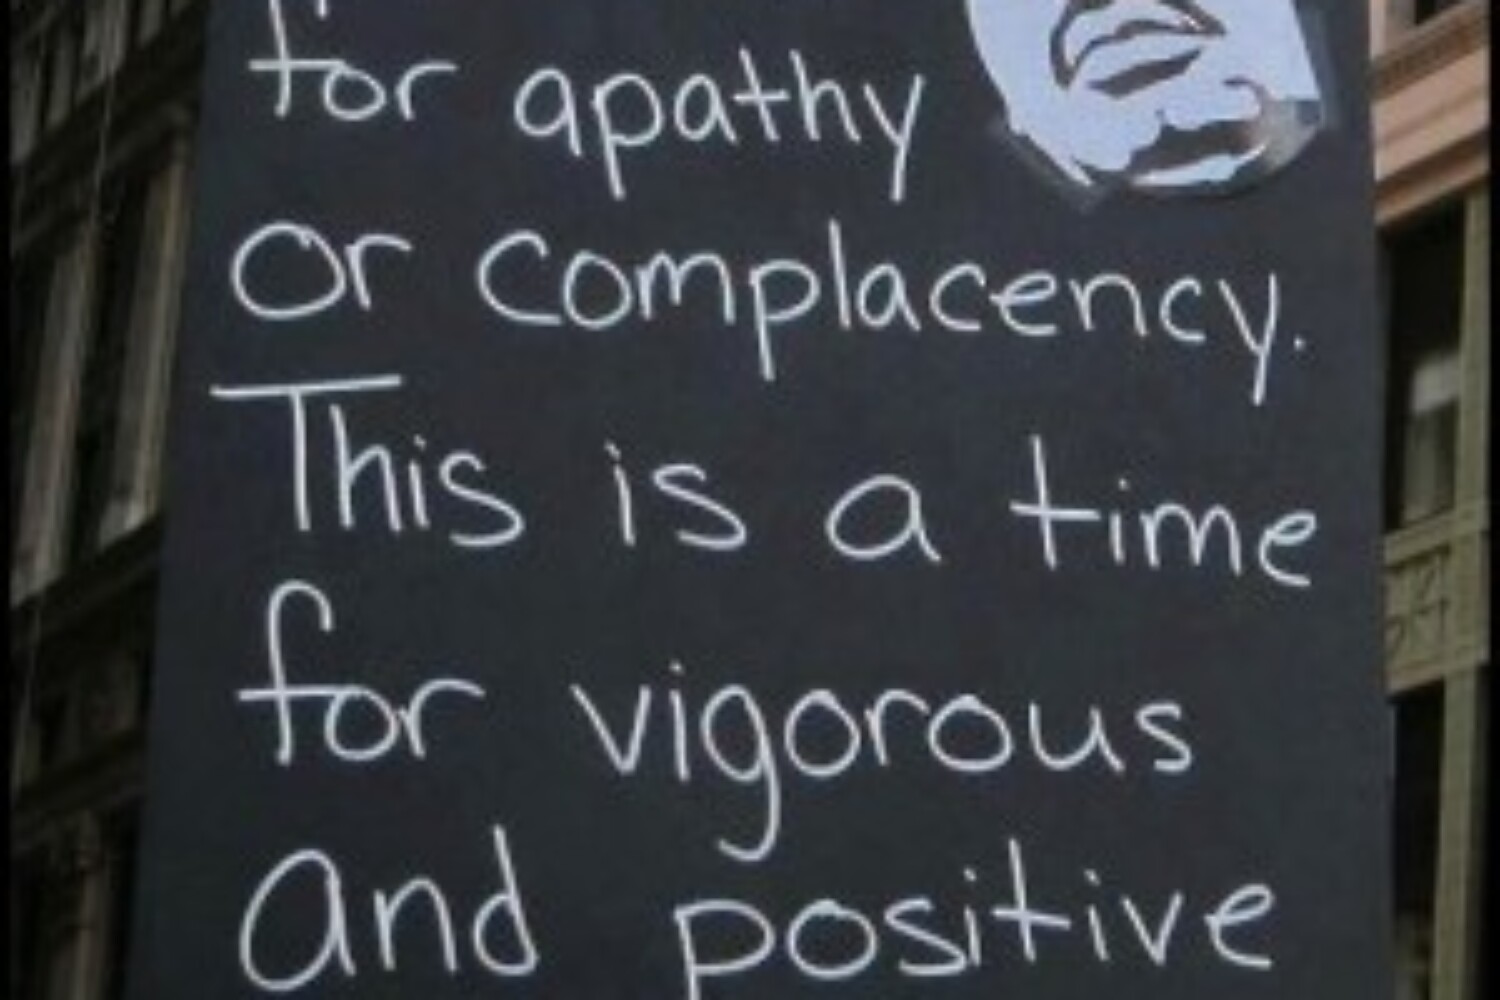 for apathy
or complacency.
This is a time
for vigorous
and positive